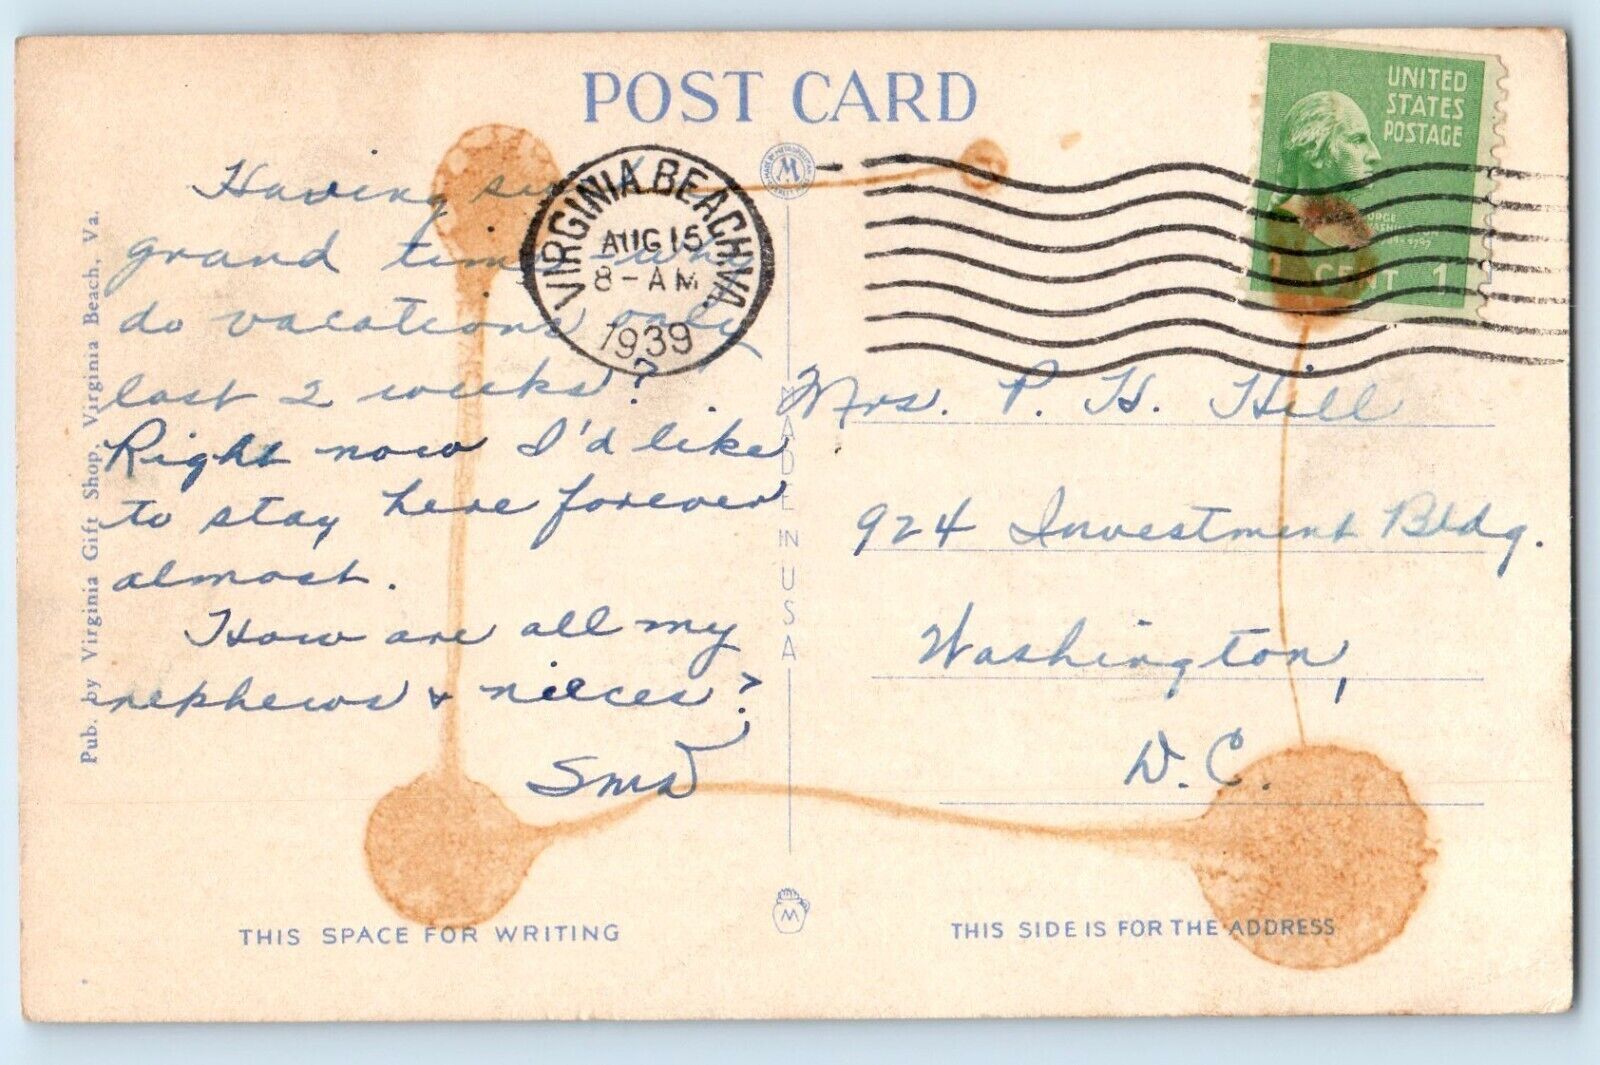 POST CARD
UNITED
STATES
POSTAGE
CENT 1
VIRGINIA BEACH VA.
AUG 15
8-AM
1939
M
Having such
grand time - why
do vacations only
last 2 weeks?
Right now I'd like
to stay here forever
almost.
How are all my
nephews & nieces?
Mrs. P. H. Hill
924 Investment Bldg.
Washington,
D.C.
MADE IN USA
Pub. by Virginia Gift Shop, Virginia Beach, Va.
M
THIS SPACE FOR WRITING
THIS SIDE IS FOR THE ADDRESS